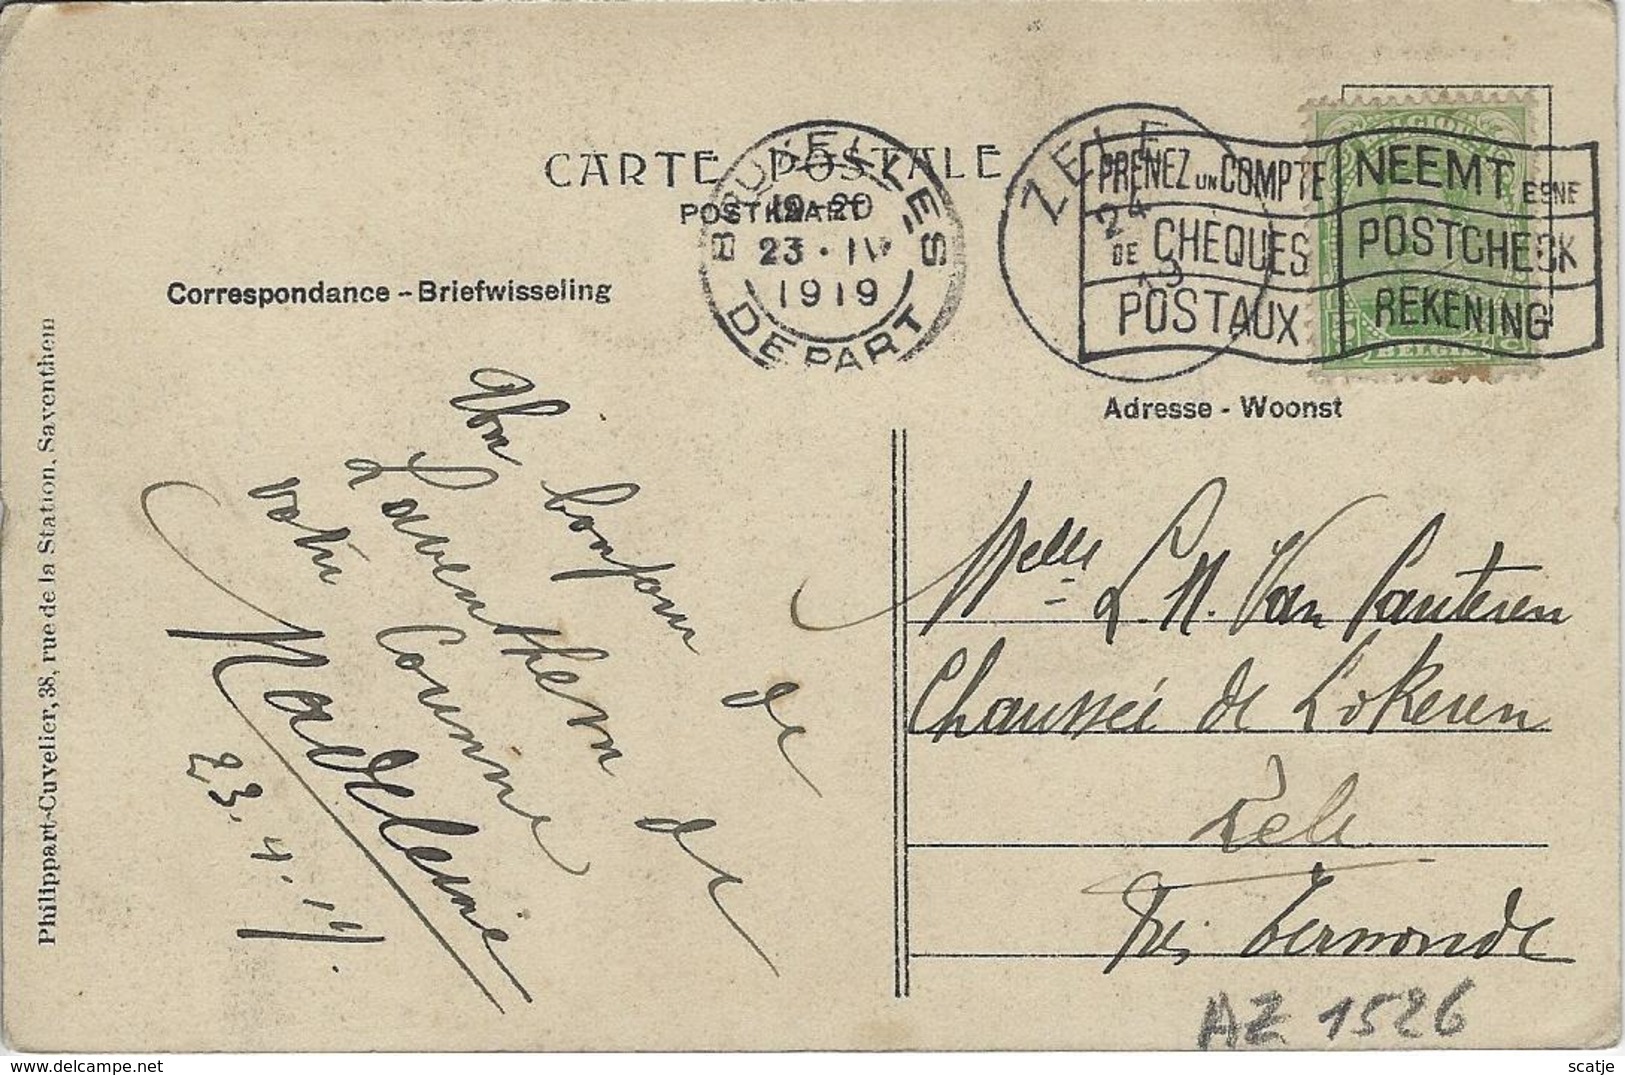 CARTE POSTALE
POSTKAART
Correspondance - Briefwisseling
BRUXELLES
19-20
23 · IV
1919
DEPART
ZELE
24
19
PRENEZ UN COMPTE
DE CHÈQUES
POSTAUX
NEEMT EENE
POSTCHECK
REKENING
BELGIQUE
5 5
BELGIE
Adresse - Woonst
Un bonjour de
Saventhem de
votre Cousine
Madeleine
23.4.19.
Melle L. N. Van Cauteren
Chaussée de Lokeren
Zele
Près Termonde
AZ 1526
Philippart-Cuvelier, 38, rue de la Station, Saventhem
delcampe.net
scatje